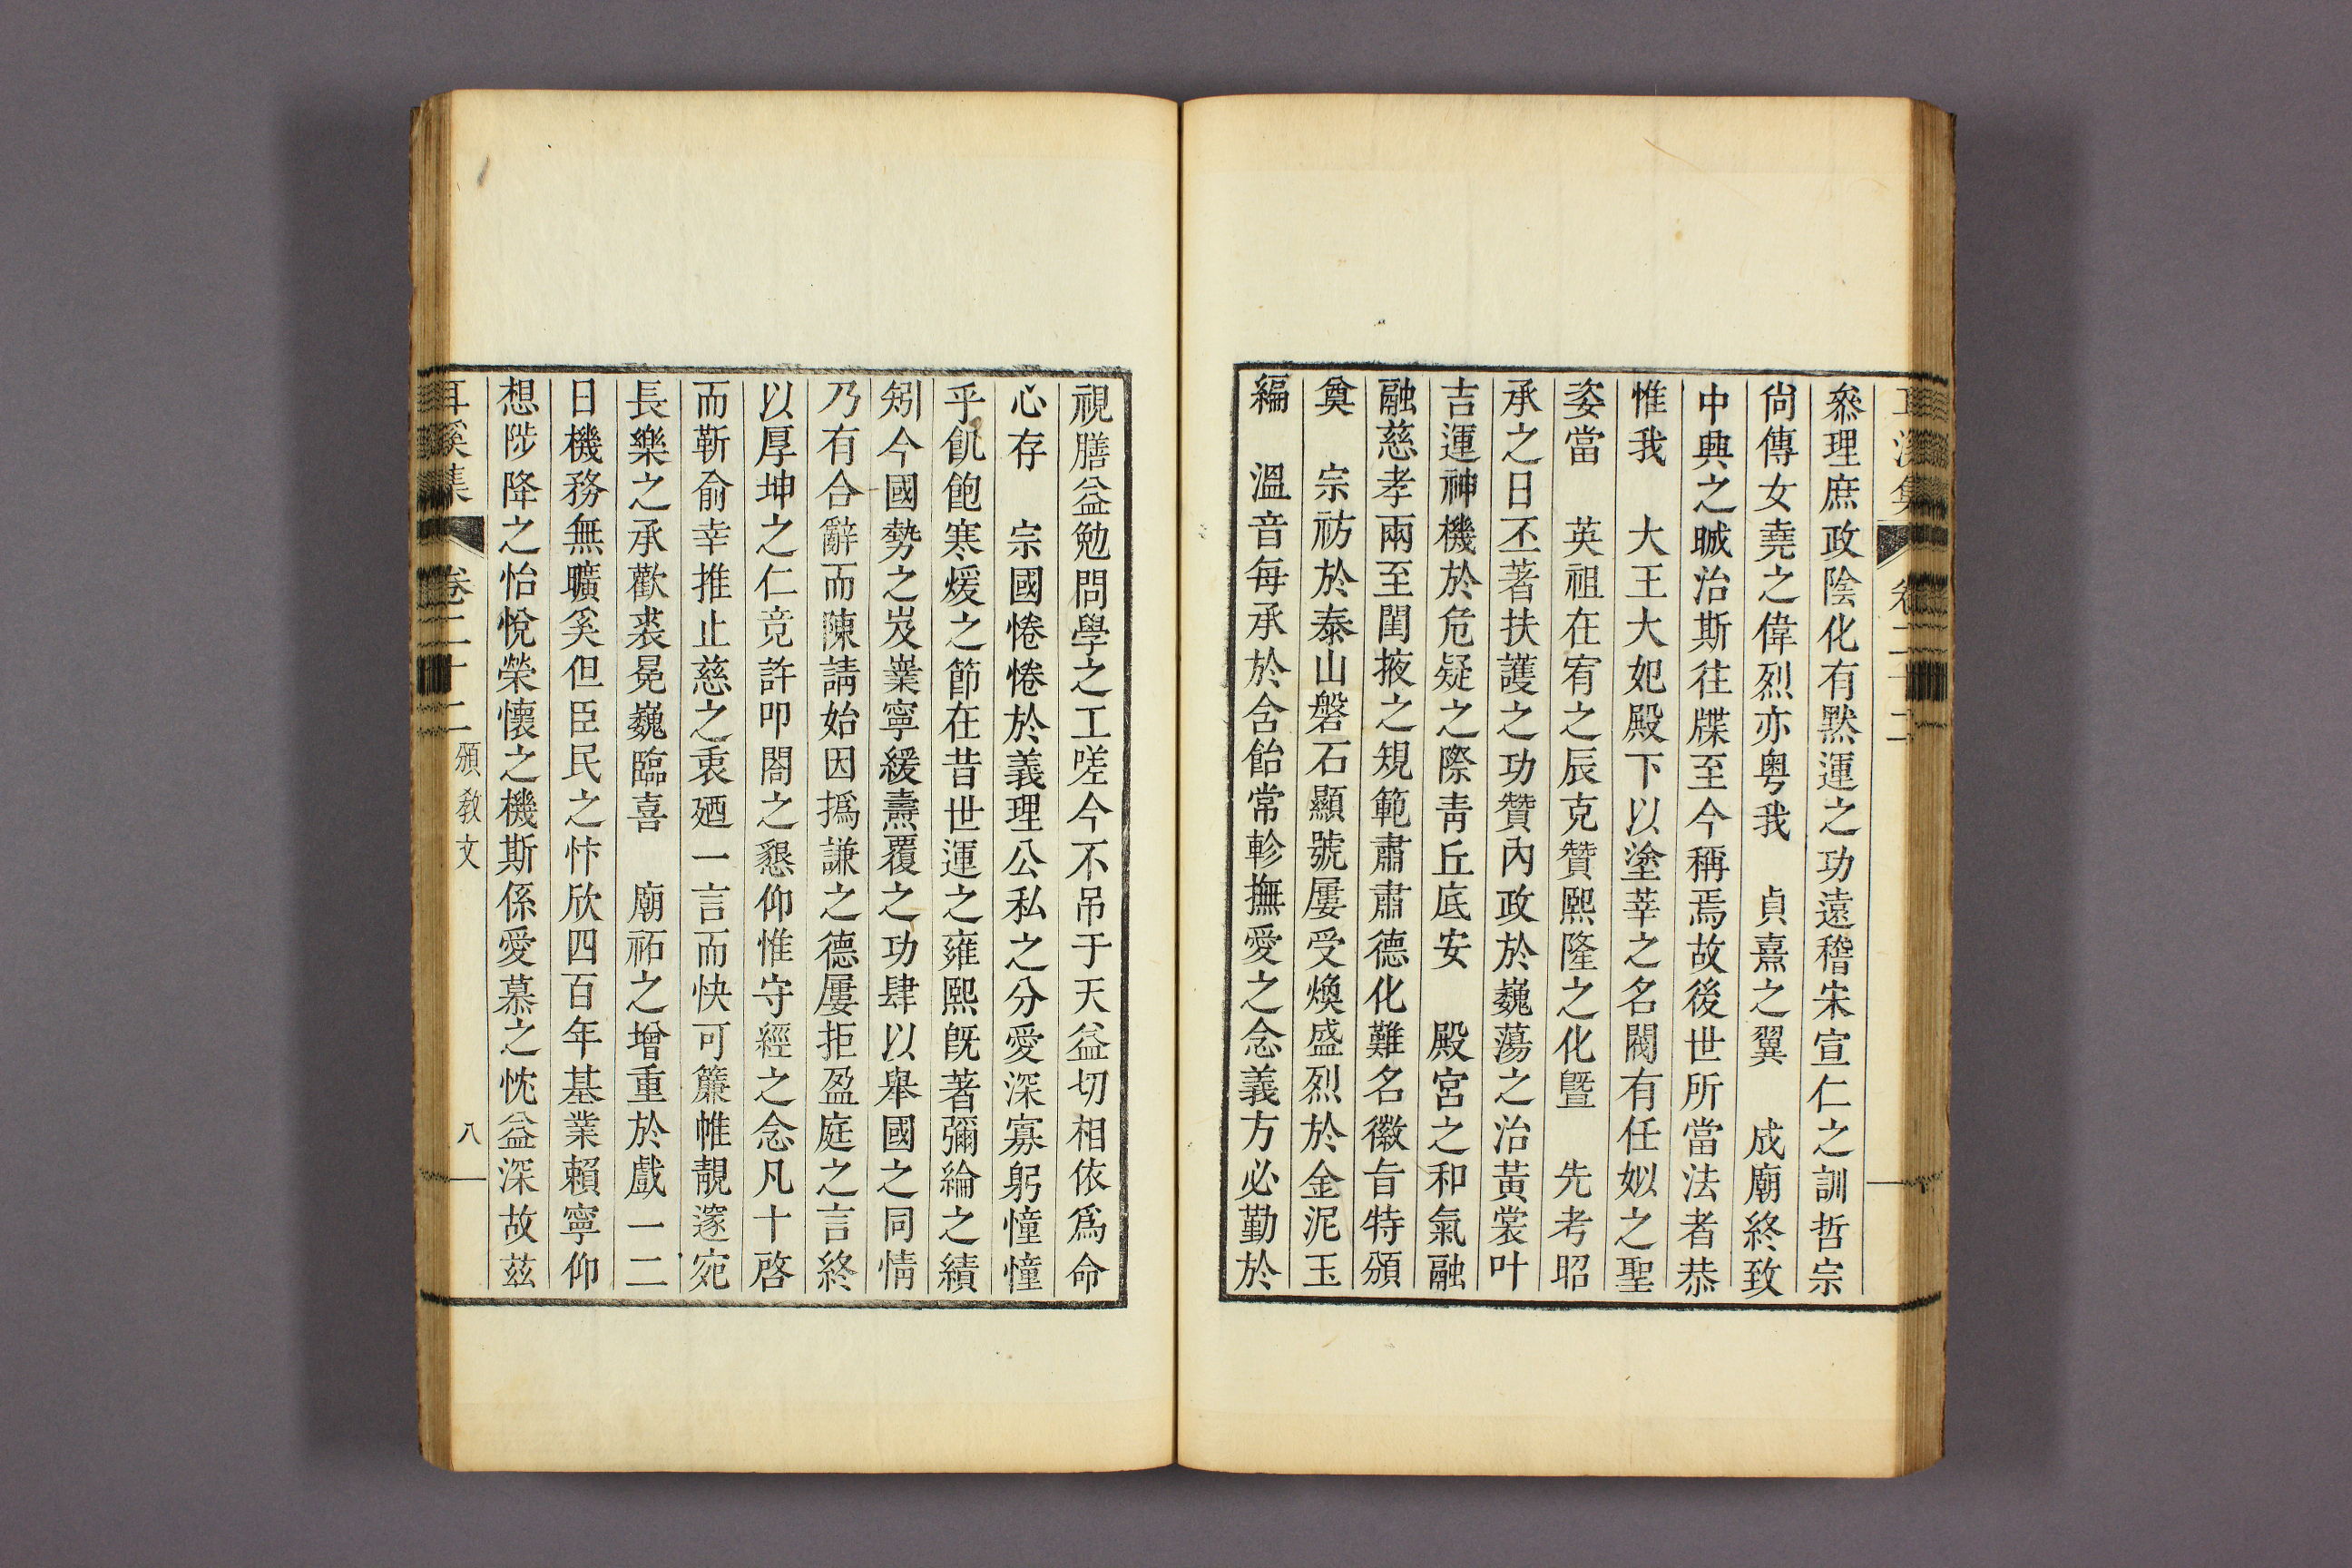 耳溪集 卷二十二
叅理庶政陰化有默運之功遠稽宋宣仁之訓哲宗
尙傳女堯之偉烈亦粤我 貞熹之翼 成廟終致
中興之晠治斯往牒至今稱焉故後世所當法者恭
惟我 大王大妃殿下以塗莘之名閥有任姒之聖
姿當 英祖在宥之辰克贊熙隆之化曁 先考昭
承之日丕著扶護之功贊內政於巍蕩之治黃裳叶
吉運神機於危疑之際靑丘底安 殿宮之和氣融
融慈孝兩至閨掖之規範肅肅德化難名徽旨特頒
奠 宗祊於泰山磐石顯號屢受煥盛烈於金泥玉
編 溫音每承於含飴常軫撫愛之念義方必勤於
視膳益勉問學之工嗟今不吊于天益切相依爲命
心存 宗國惓惓於義理公私之分愛深寡躬憧憧
乎飢飽寒煖之節在昔世運之雍熙旣著彌綸之績
矧今國勢之岌嶪寧緩燾覆之功肆以舉國之同情
乃有合辭而陳請始因撝謙之德屢拒盈庭之言終
以厚坤之仁竟許叩閤之懇仰惟守經之念凡十啓
而靳兪幸推止慈之衷廼一言而快可簾帷靚邃宛
長樂之承歡裘冕巍臨喜 廟祏之增重於戲一二
日機務無曠奚但臣民之忭欣四百年基業賴寧仰
想陟降之怡悅榮懷之機斯係愛慕之忱益深故茲
耳溪集 卷二十二 頒敎文 八